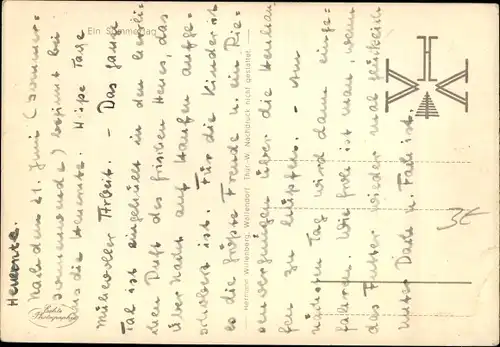 Ein Sommertag
Heuernte.
Nach dem 21. Juni (Sommer-
sonnenwende) beginnt bei
uns die Heuernte. Heiße Tage
mühevoller Arbeit. – Das ganze
Tal ist eingehüllt in den herrli-
chen Duft des frischen Heues, das
über Nacht auf Haufen aufge-
schobert ist. Für die Kinder ist
es die größte Freude u. ein Rie-
senvergnügen über die Heuhau-
fen zu hüpfen. – Am
nächsten Tag wird dann einge-
fahren. Wie froh ist man, wenn
das Futter wieder mal glücklich
unter Dach u. Fach ist.
Hermann Wittenberg, Wallendorf Thür. W. Nachdruck nicht gestattet.
Echte
Photographie